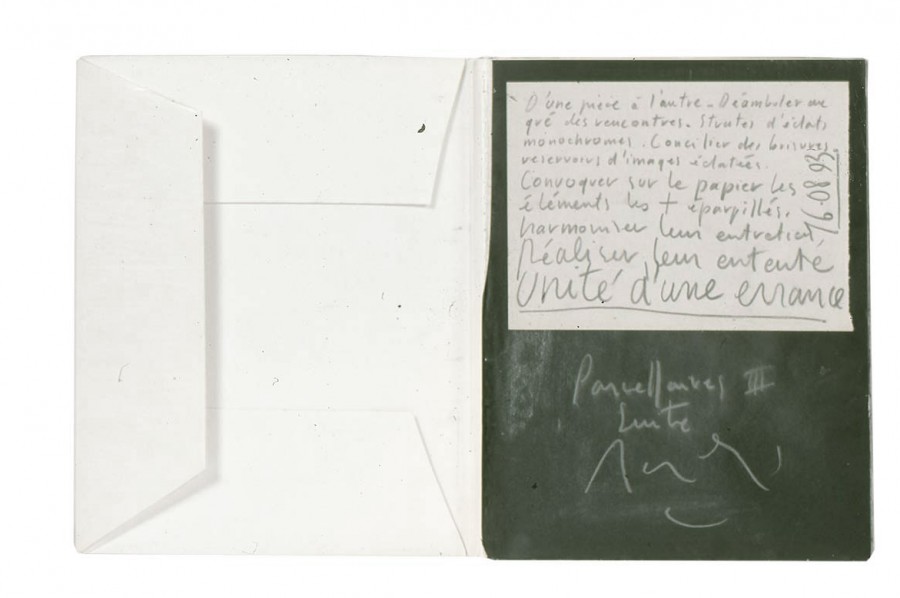 D'une pièce à l'autre - Déambuler au
gré des rencontres. Strates d'éclats
monochromes. Concilier des brisures
réservoirs d'images éclatées.
Convoquer sur le papier les
éléments les + éparpillés,
harmoniser leur entretien,
Réaliser leur entente
Unité d'une errance
16.08.93
Parcellaires III
Suite